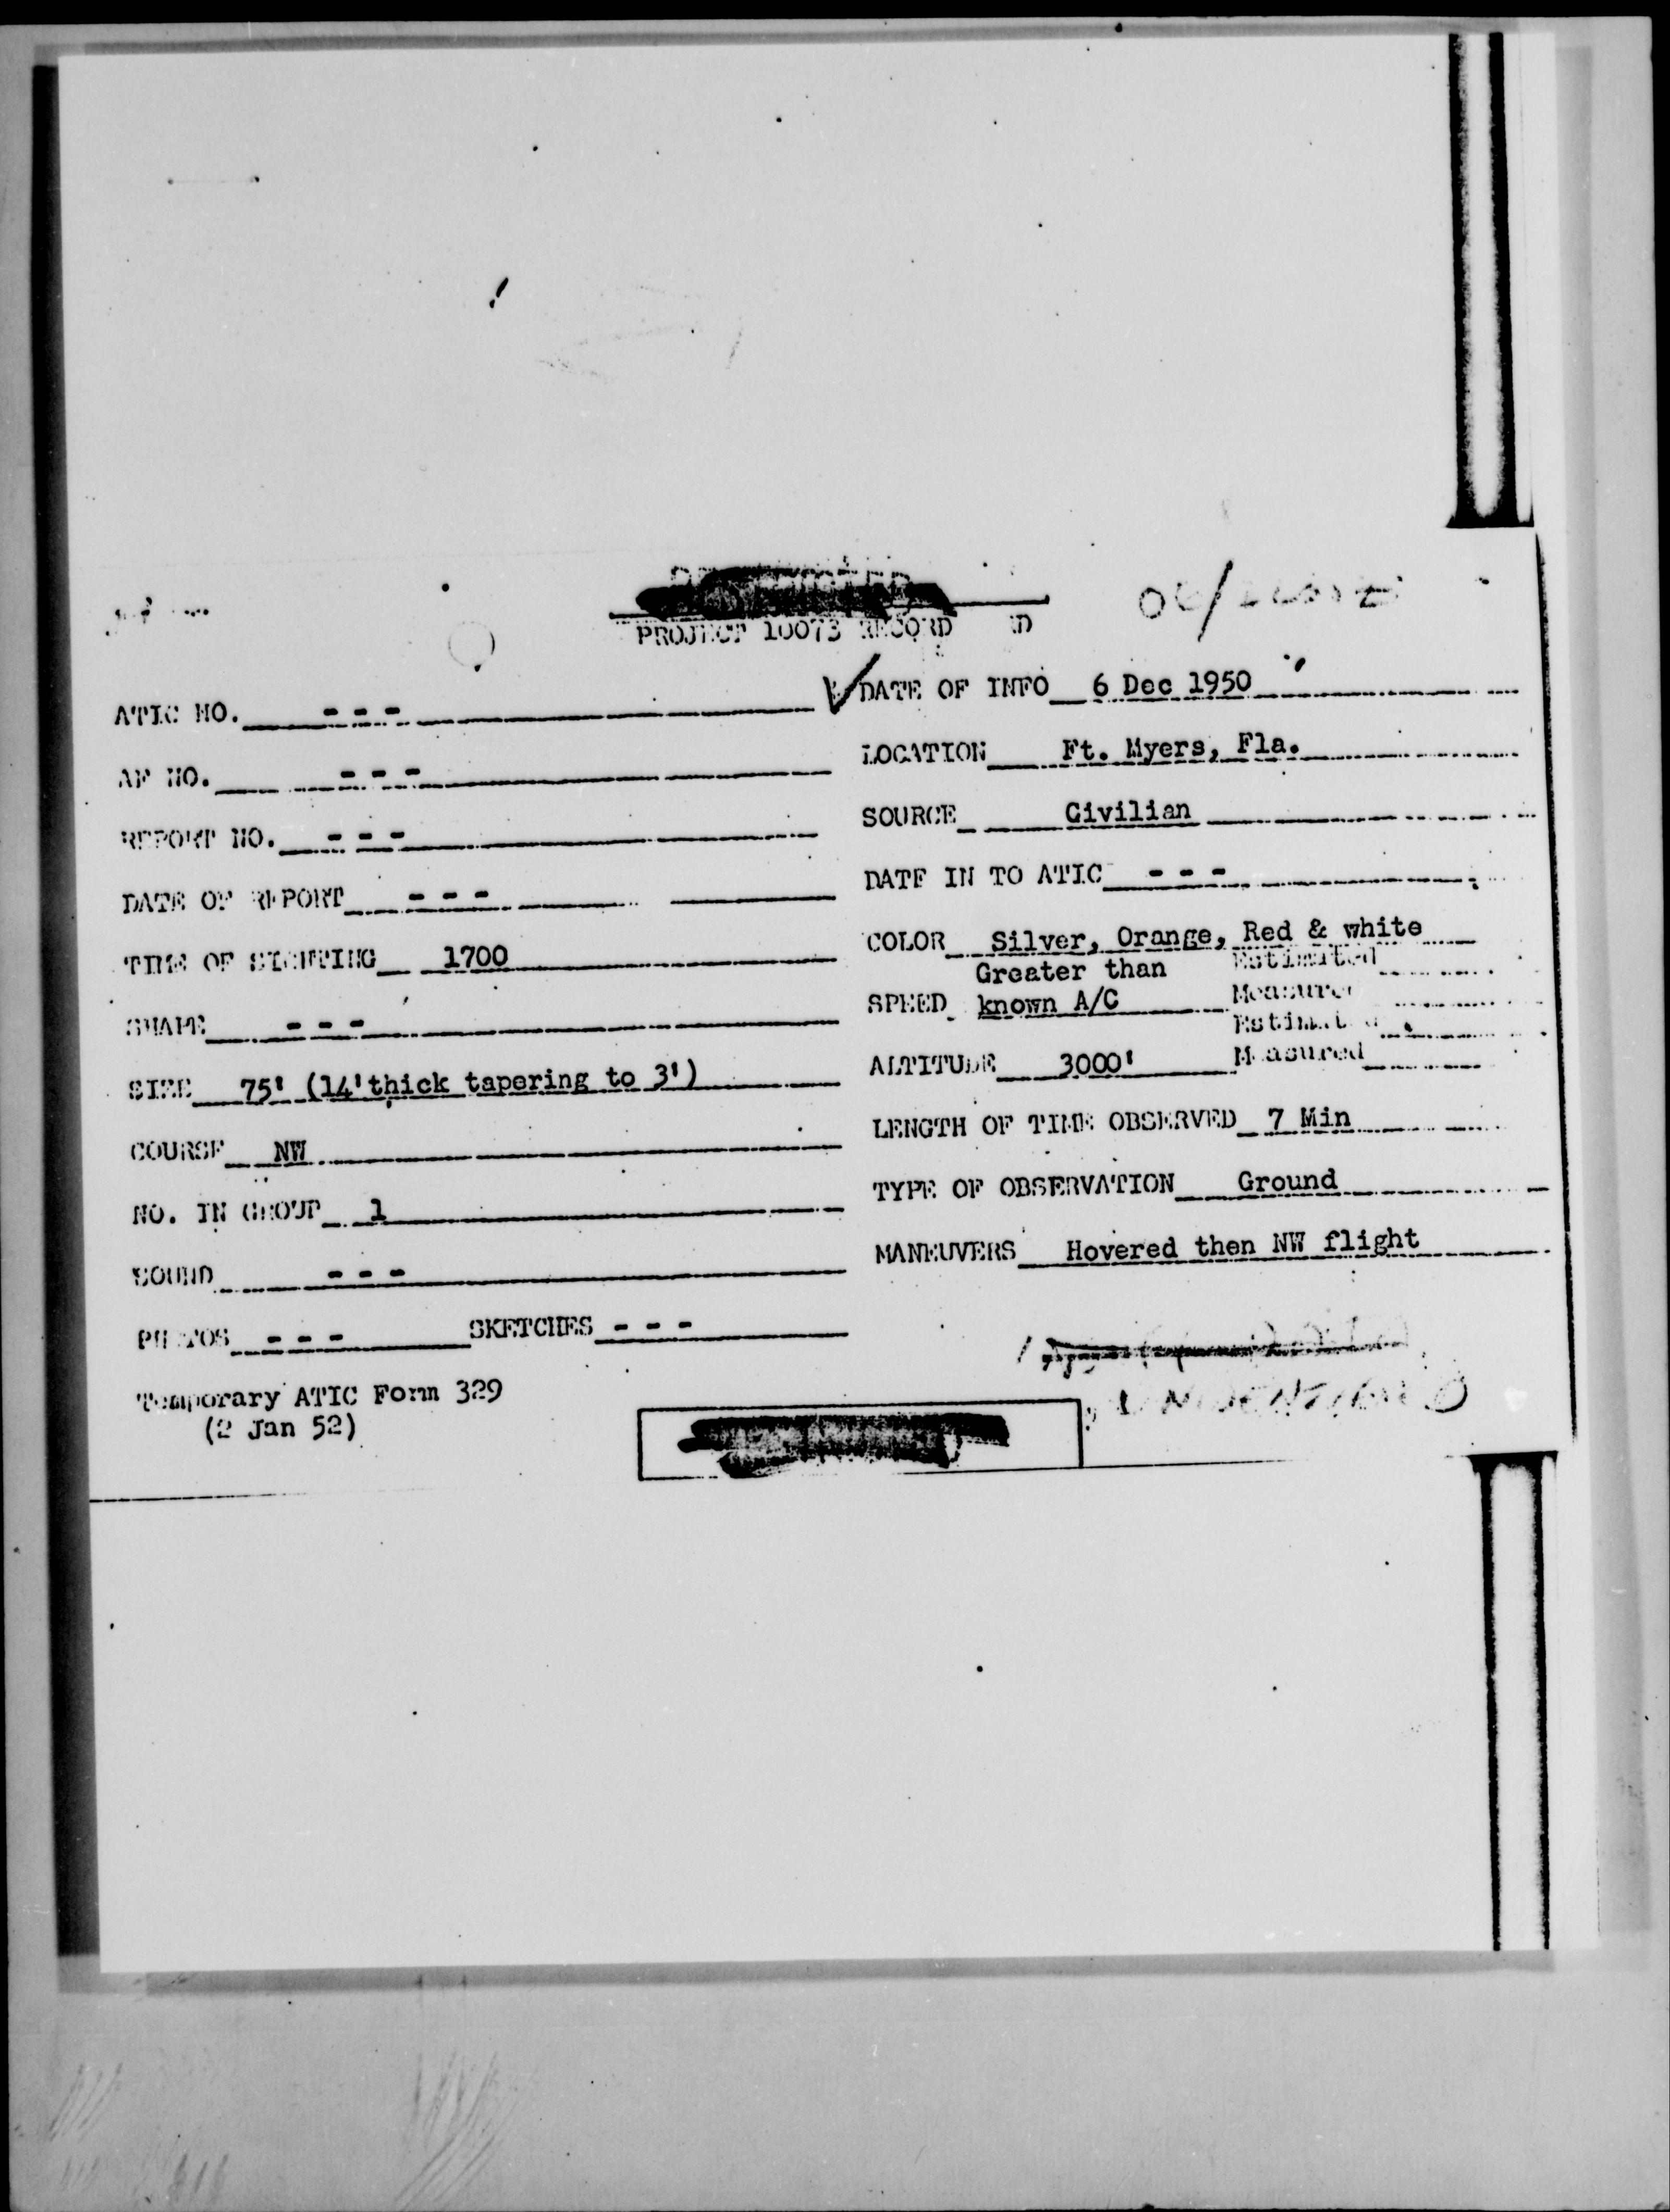 PROJECT 10073 RECORD
ATIC NO. - - -
AF NO. - - -
REPORT NO. - - -
DATE OF REPORT - - -
TIME OF SIGHTING 1700
SHAPE - - -
SIZE 75' (14'thick tapering to 3')
COURSE NW
NO. IN GROUP 1
SOUND - - -
PHOTOS - - - SKETCHES - - -
Temporary ATIC Form 329
(2 Jan 52)
DATE OF INFO 6 Dec 1950
LOCATION Ft. Myers, Fla.
SOURCE Civilian
DATE IN TO ATIC - - -
COLOR Silver, Orange, Red & white
Greater than Estimated
SPEED known A/C Measured
Estimated
ALTITUDE 3000' Measured
LENGTH OF TIME OBSERVED 7 Min
TYPE OF OBSERVATION Ground
MANEUVERS Hovered then NW flight
UNIDENTIFIED